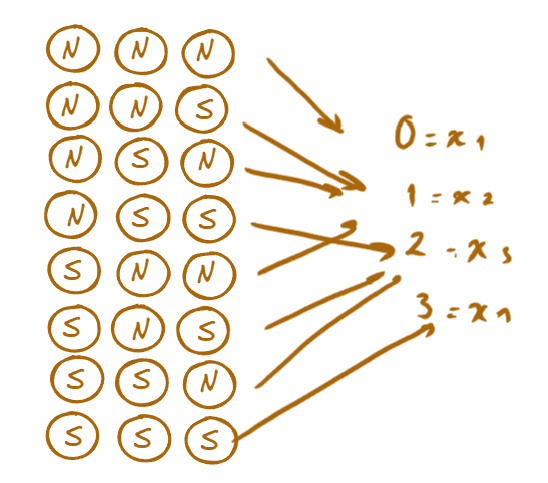 N N N
N N S
N S N
N S S
S N N
S N S
S S N
S S S
0 = x 1
1 = x 2
2 = x 3
3 = x n